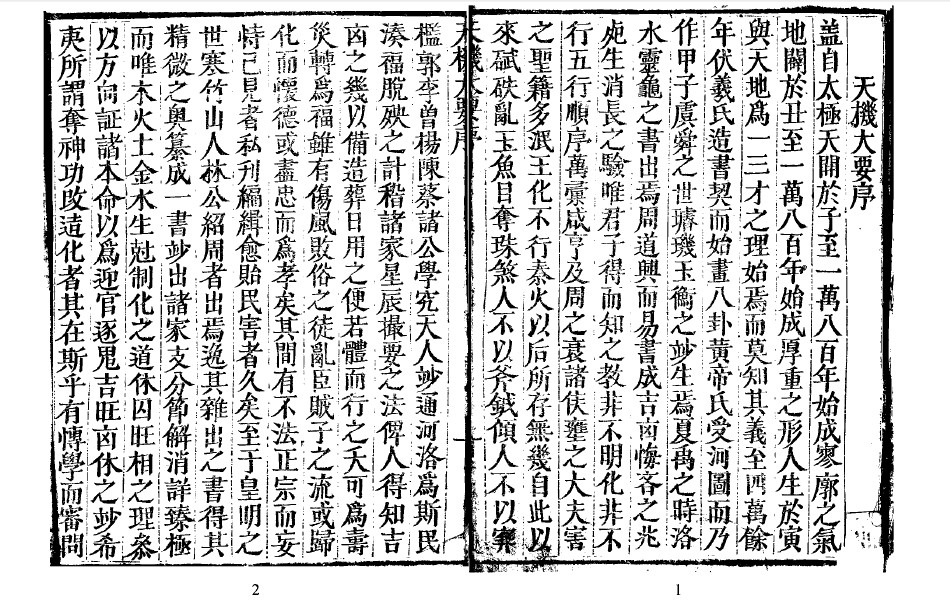 天機大要序
盖自太極天開於子至一萬八百年始成寥廓之氣
地闢於丑至一萬八百年始成厚重之形人生於寅
與天地爲一三才之理始焉而莫知其義至四萬餘
年伏羲氏造書契而始畫八卦黄帝氏受河圖而乃
作甲子虞舜之世璿璣玉衡之妙生焉夏禹之時洛
水靈龜之書出焉周道興而易書成吉凶悔吝之兆
死生消長之驗唯君子得而知之教非不明化非不
行五行順序萬彙咸亨及周之衰諸侯壅之大夫害
之聖籍多泯王化不行秦火以后所存無幾自此以
來碔砆亂玉魚目奪珠煞人不以斧鉞傾人不以
天機大要序
楹郭李曽楊陳蔡諸公學究天人妙通河洛爲斯民
湊福脫殃之計稽諸家星辰撮要之法俾人得知吉
凶之幾以備造葬日用之便若體而行之夭可爲壽
災轉爲福雖有傷風敗俗之徒亂臣賊子之流或歸
化而懷德或盡忠而爲孝矣其間有不法正宗而妄
恃己見者私刋編緝愈貽民害者久矣至于皇明之
世寒竹山人林公紹周者出焉逸其雜出之書得其
精微之奥纂成一書妙出諸家支分節解消詳臻極
而唯木火土金水生尅制化之道休囚旺相之理叅
以方向証諸本命以爲迎官逐鬼吉旺凶休之妙希
夷所謂奪神功改造化者其在斯乎有慱學而審問
2
1